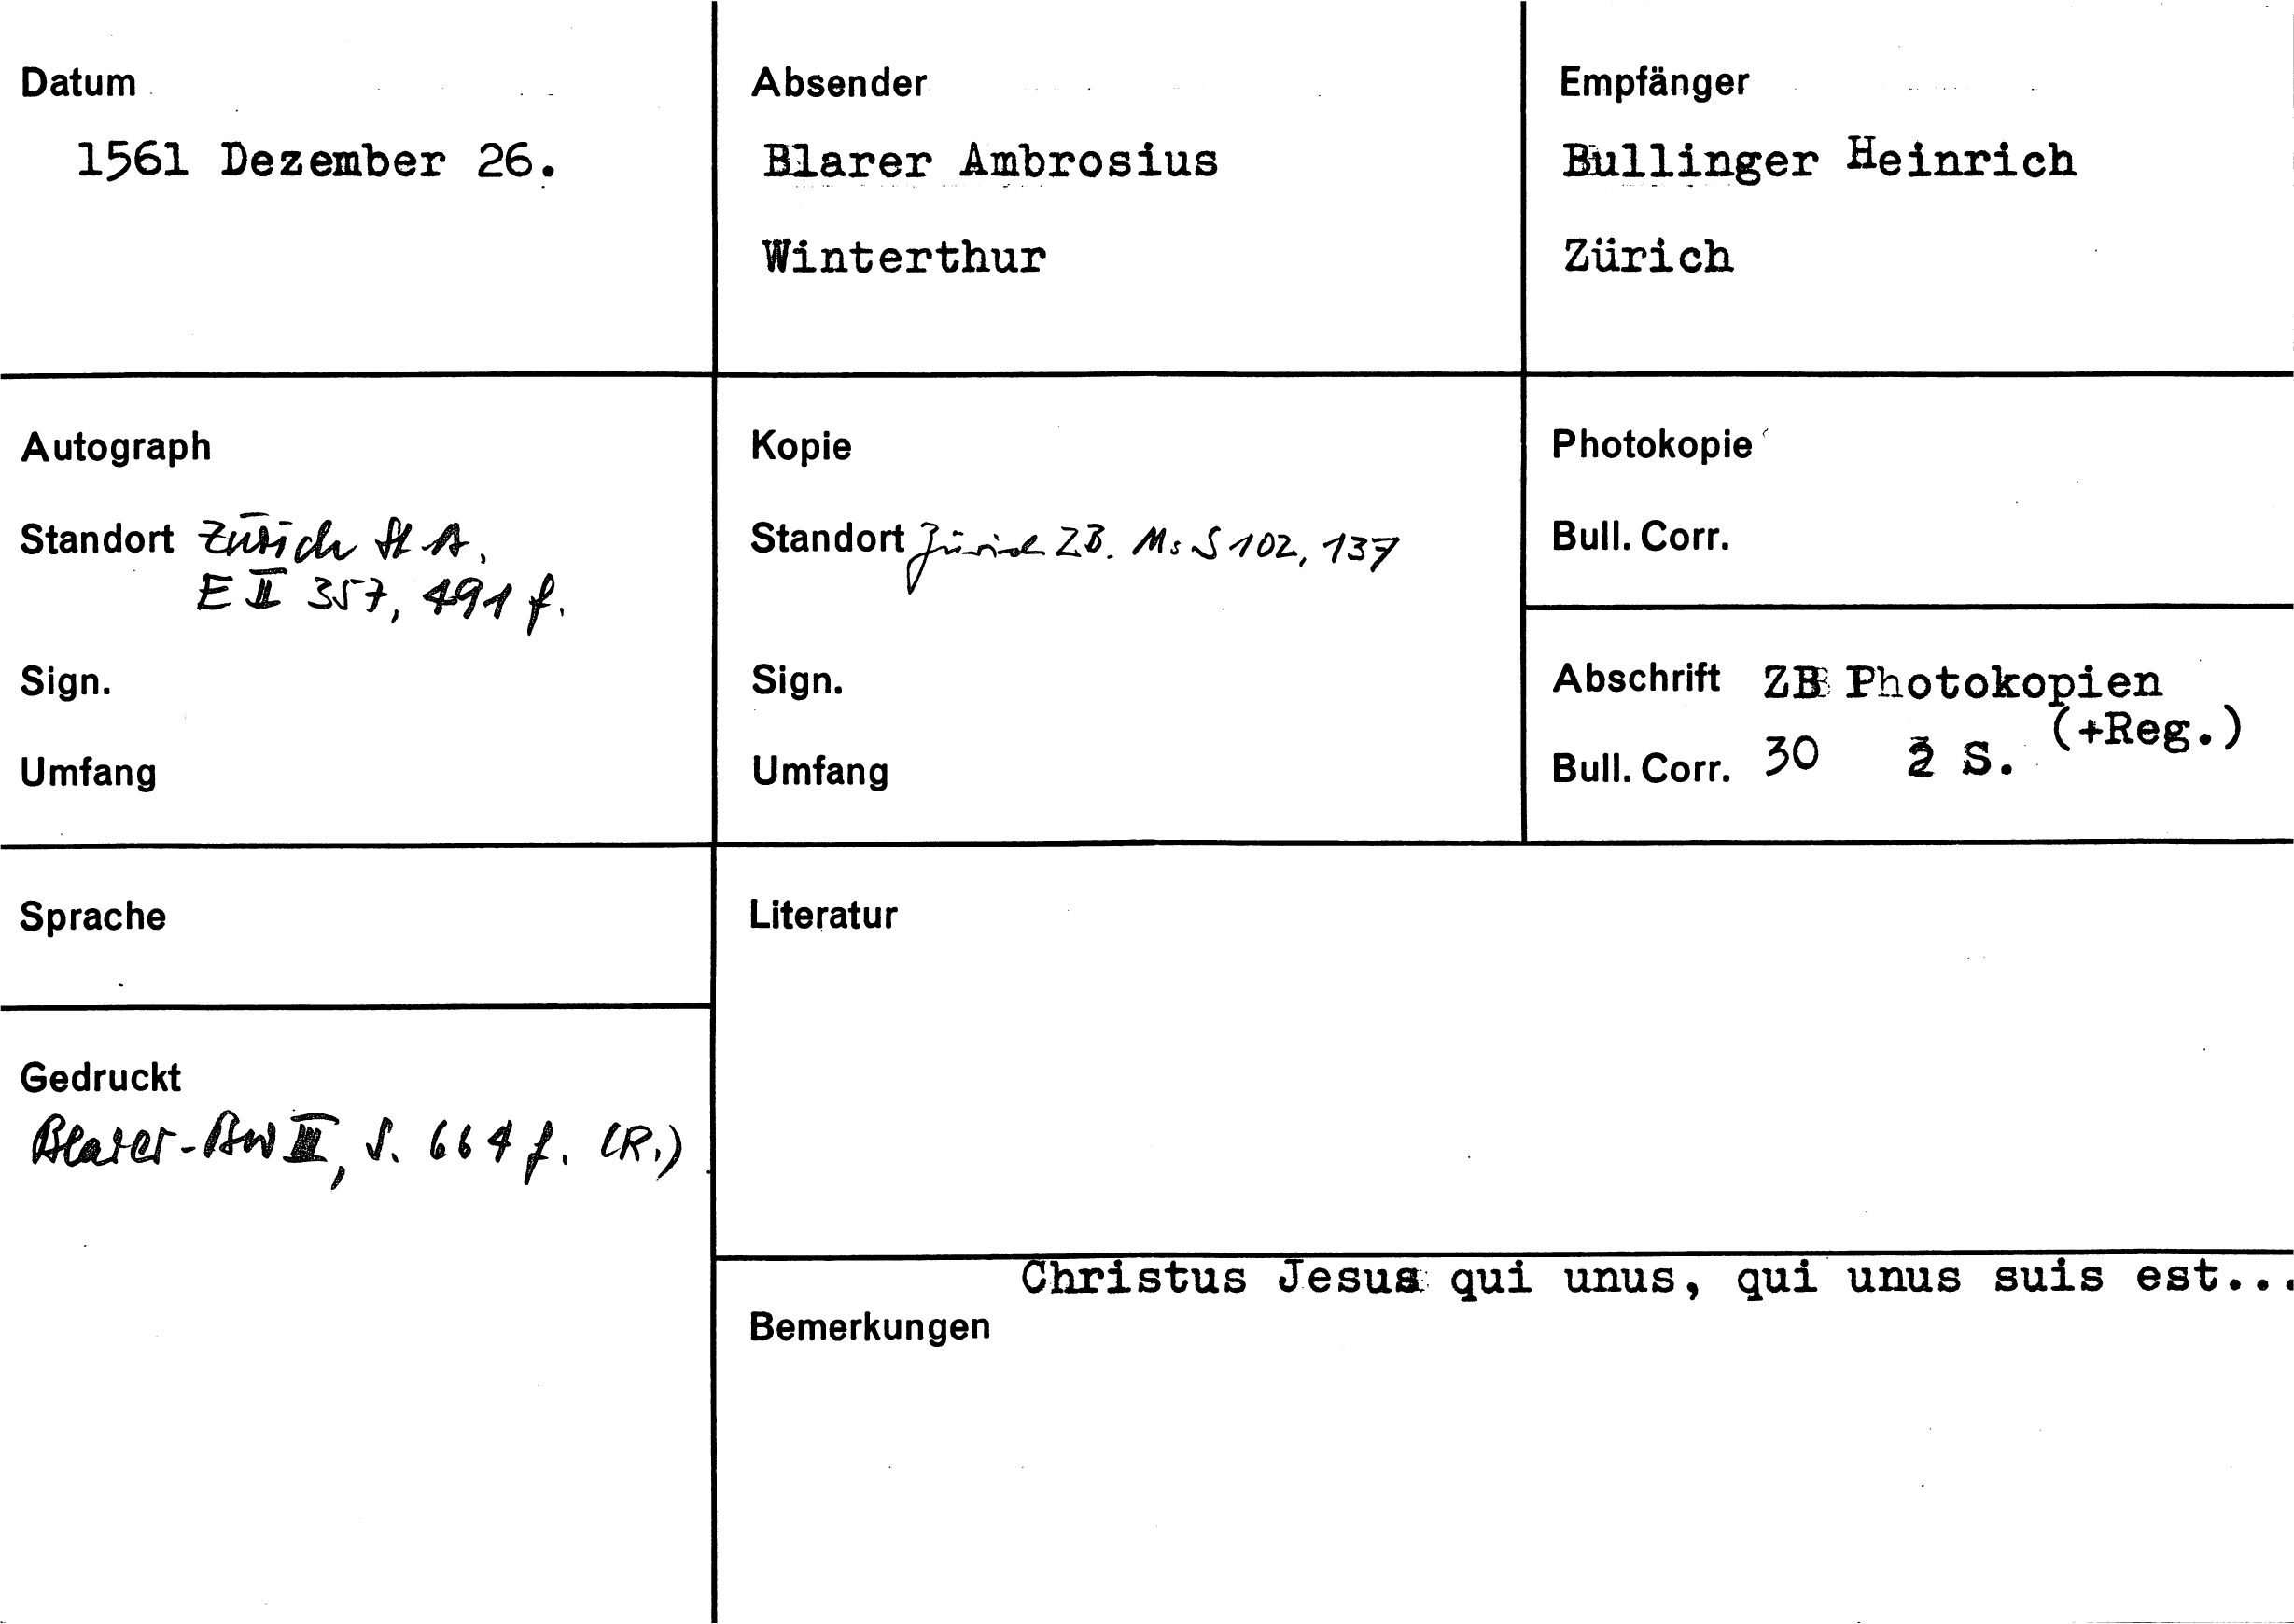 Datum
1561 Dezember 26.
Absender
Blarer Ambrosius
Winterthur
Empfänger
Bullinger Heinrich
Zürich
Autograph
Standort Zürich StA,
E II 357, 491 f.
Sign.
Umfang
Kopie
Standort Zürich ZB. Ms S 102, 137
Sign.
Umfang
Photokopie
Bull. Corr.
Abschrift ZB Photokopien
(+Reg.)
Bull. Corr. 30 2 S.
Sprache
Literatur
Gedruckt
Blarer-BW III, S. 664 f. (R.)
Christus Jesus qui unus, qui unus suis est...
Bemerkungen